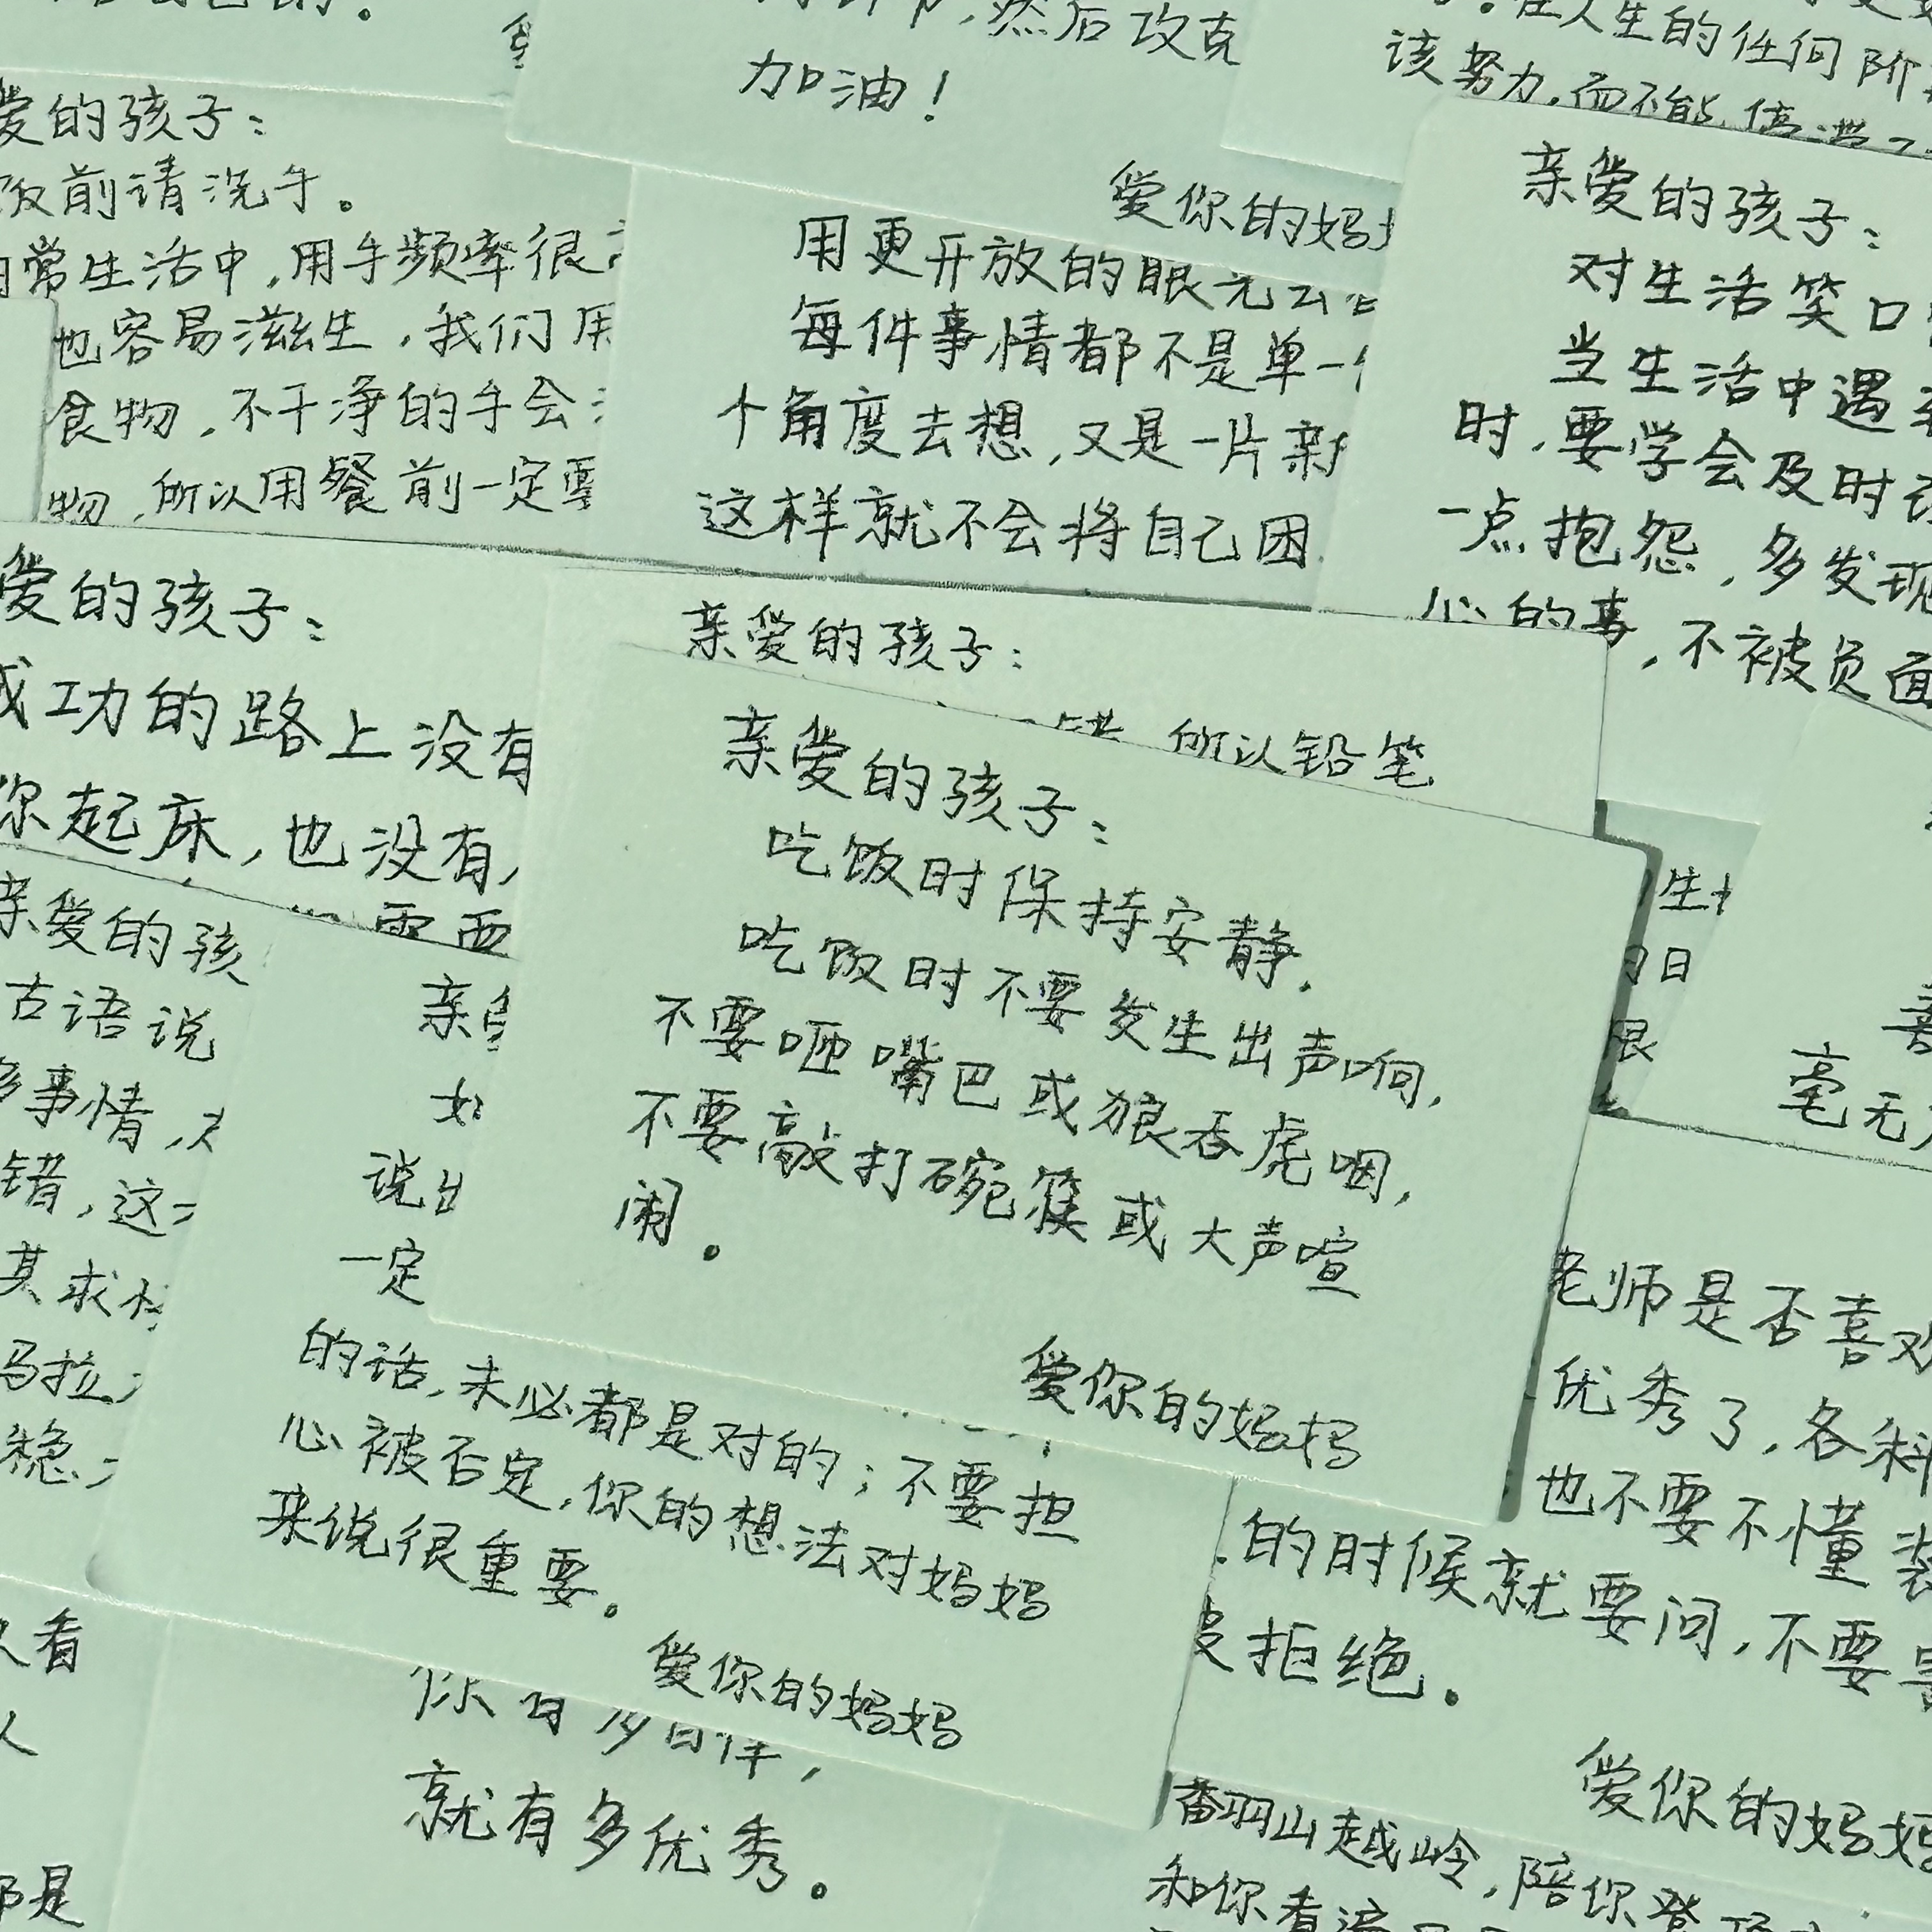 加油！
爱你的妈
然后攻克
在人生的任何阶
该努力，而不能停滞
爱的孩子：
饭前请洗手。
日常生活中，用手频率很高
也容易滋生，我们用
食物，不干净的手会
物，所以用餐前一定要
用更开放的眼光去看
每件事情都不是单一
个角度去想，又是一片新
这样就不会将自己困
亲爱的孩子：
对生活笑口
当生活中遇到
时，要学会及时
一点抱怨，多发现
心的事，不被负面
爱的孩子：
成功的路上没有
你起床，也没有
需要
亲爱的孩子：
所以铅笔
亲爱的孩子：
吃饭时保持安静。
吃饭时不要发生出声响，
不要咂嘴巴或狼吞虎咽，
不要敲打碗筷或大声喧
闹。
爱你的妈妈
亲爱的孩
古语说
多事情，
错，这
其求
马拉
稳，
说出
一定
的话，未必都是对的；不要担
心被否定，你的想法对妈妈
来说很重要。
爱你的妈妈
毫无
老师是否喜欢
优秀了，各科
也不要不懂装
的时候就要问，不要害
被拒绝。
爱你的妈妈
看
人
都是
你有多自律，
就有多优秀。
翻山越岭，陪你登顶
和你看遍